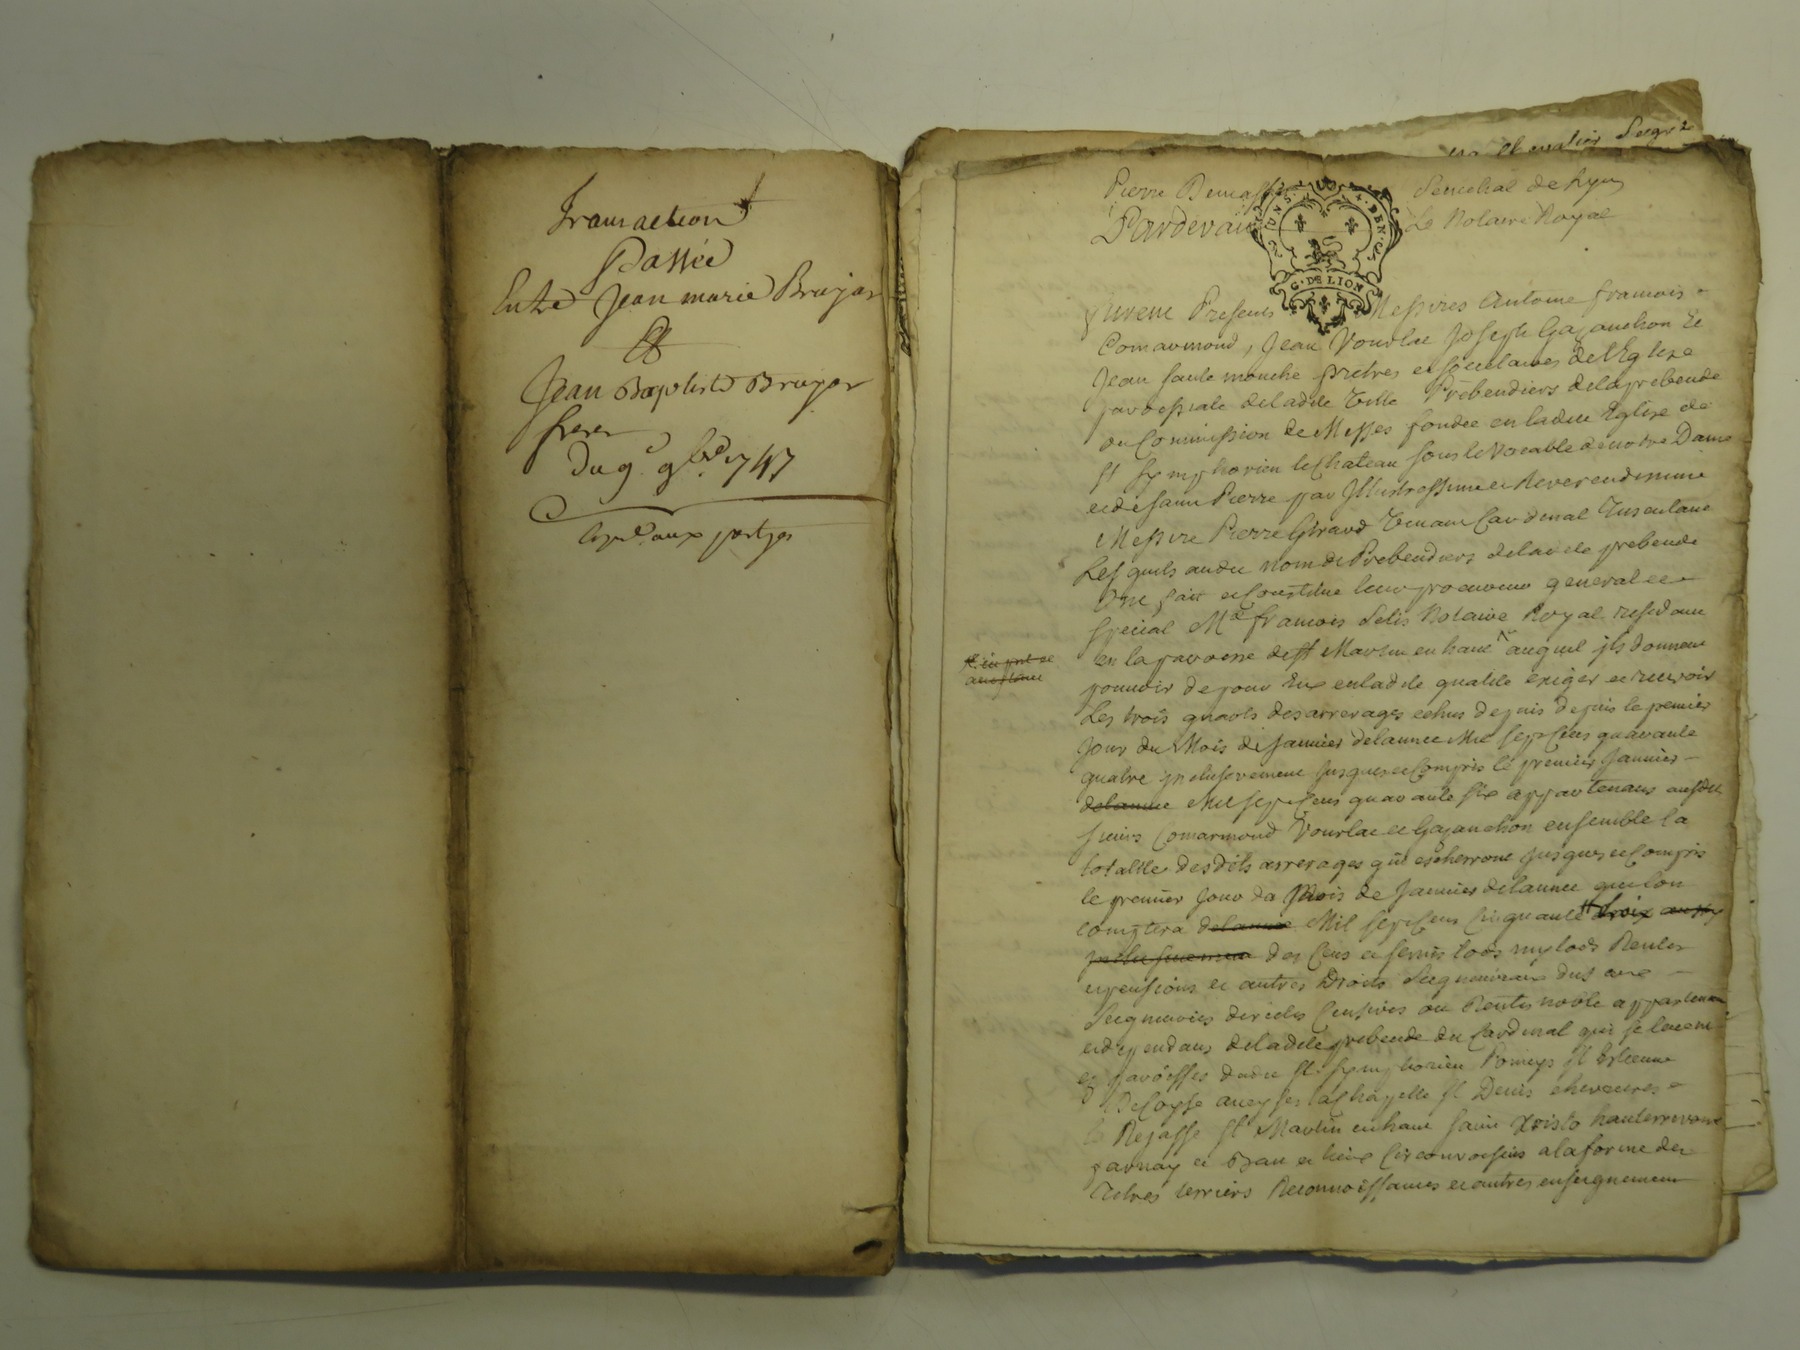 Transaction
Passée
Entre Jean marie Brujas
Et
Jean Baptiste Brujas
freres
Du 9e 9bre 1747
aux partyes
Seigr
Pierre Demasso Senechal de Lyon
Pardevant Le Notaire Royal
DEUX SOLS
G. DE LION
furent Presents Messires Antoine francois
Comarmond, Jean Vourlat Joseph Gajanchon et
Jean fautemouche pretres et societaires de l'Eglize
paroessiale deladite Ville Prebendiers delaprebende
ou Commission de Messes fondée en ladite Eglize de
St Symphorien leChateau sous le Vocable de notre Dame
et de saint Pierre par Illustrissime et Reverendissime
Messire Pierre Girard Cardinal Tusculane
Lesquels audit nom de Prebendiers deladite prebende
Ont fait et Constitué leur procureur general et
special Me francois Notaire Royal residant
en la paroesse de St Martin en haut auquel ils donnent
pouvoir de pour Eux enladite qualité exiger et recevoir
Les trois quarts des arrerages echus depuis depuis le premier
Jour du Mois de Janvier delannée Mil sept Cens quarante
quatre inclusivement jusques et Compris le premier Janvier
delannée Mil sept Cens quarante six appartenans ausdits
sieurs Comarmond Vourlat et Gajanchon ensemble la
totalité desdits arrerages qui escherront jusques et Compris
le premier Jour du Mois de Janvier delannée que lon
comptera delannée Mil sept Cens Cinquante trois
inclusivement des Cens et servis lods mylods Rentes
et pensions et autres Droits Seigneuriaux dus aux
Seigneuries directes Censives ou Rentes noble appartenans
et dependans deladite prebende du Cardinal qui se levent
es paroesses dudit St Symphorien Pomeys St Estienne
DeCoyse aveyses laChapelle St Denis chevrieres
la Rejasse St Martin en haut saint Xristo hauterivoire
et lieux Circonvoisins a la forme des
Titres terriers Reconnoissances et autres enseignemens